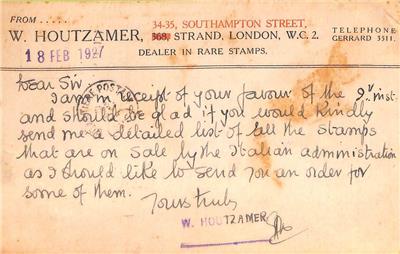 FROM
34-35, SOUTHAMPTON STREET,
W. HOUTZAMER, 368, STRAND, LONDON, W.C. 2.
TELEPHONE
GERRARD 3511.
DEALER IN RARE STAMPS.
18 FEB 1927
Dear Sir
I am in receipt of your favour of the 9 inst
and should be glad if you would kindly
send me a detailed list of all the stamps
that are on sale by the Italian administration
as I should like to send you an order for
some of them.
Yours truly
W. HOUTZAMER